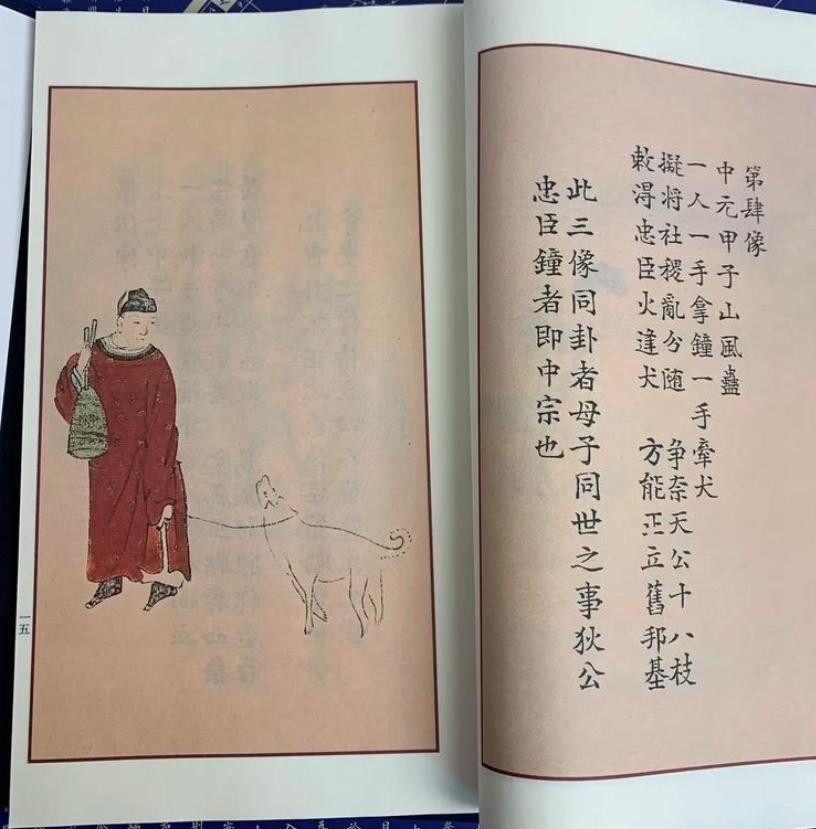 第肆像
中元甲子山風蠱
一人一手拿鐘一手牽犬
擬將社稷亂分随　争奈天公十八枝
敕淂忠臣火逢犬　方能正立舊邦基
此三像同卦者母子同世之事狄公
忠臣鐘者即中宗也
一五